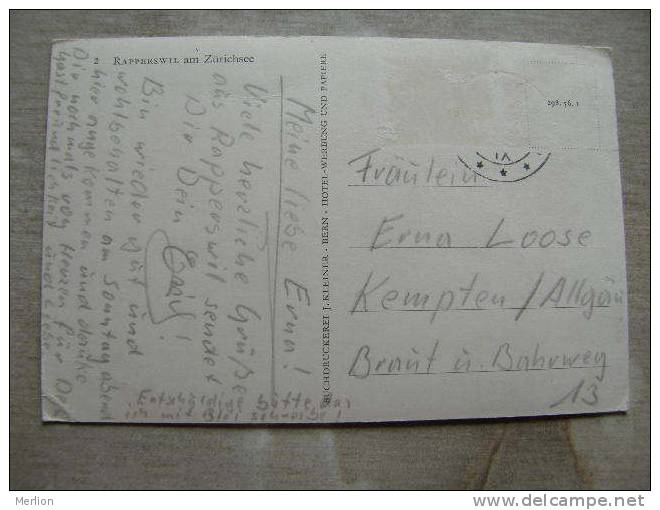 2 RAPPERSWIL am Zürichsee
Meine liebe Erna!
Viele herzliche Grüße
aus Rapperswil sendet
Dir Dein
Emil!
Bin wieder gut und
wohlbehalten am Sonntag abend
hier angekommen und danke
Dir nochmals von Herzen für Deine
Gastfreundlichkeit und Liebe
Entschuldige bitte, daß
ich mit Blei schreibe!
BUCHDRUCKEREI J. KLEINER · BERN · HOTEL-WERBUNG UND PAPIERE
298. 56. 1
XI
Fräulein
Erna Loose
Kempten / Allgäu
Braut u. Bahrweg
13
Merlion
http://www.delcampe.net